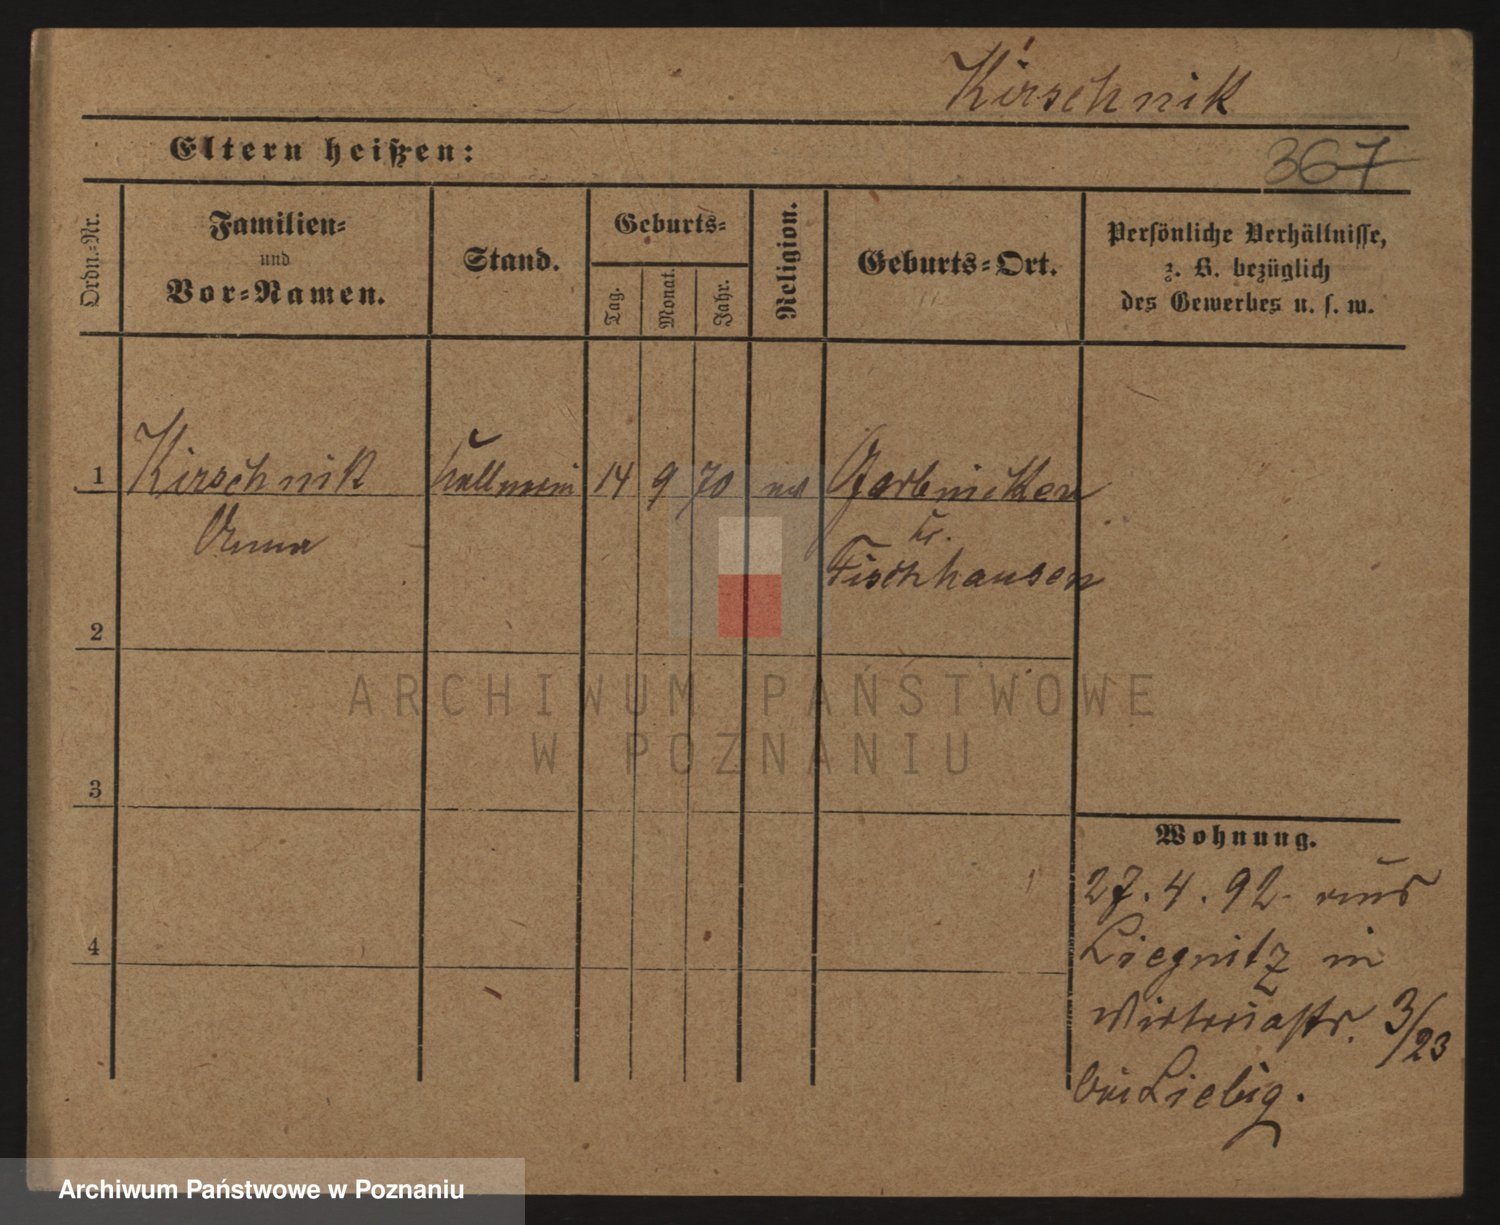 Kirschnik
Eltern heißen:
367
Ordn.-Nr.
Familien-
und
Vor-Namen.
Stand.
Geburts-
Tag.
Monat.
Jahr.
Religion.
Geburts-Ort.
Persönliche Verhältnisse,
z. B. bezüglich
des Gewerbes u. s. w.
1 Kirschnik 14 9 70 Garbnicken
Anna
Kr.
Fischhausen
2
3
4
ARCHIWUM PAŃSTWOWE
W POZNANIU
Wohnung.
27. 4. 92. aus
Liegnitz in
3/23
bei Liebig.
Archiwum Państwowe w Poznaniu